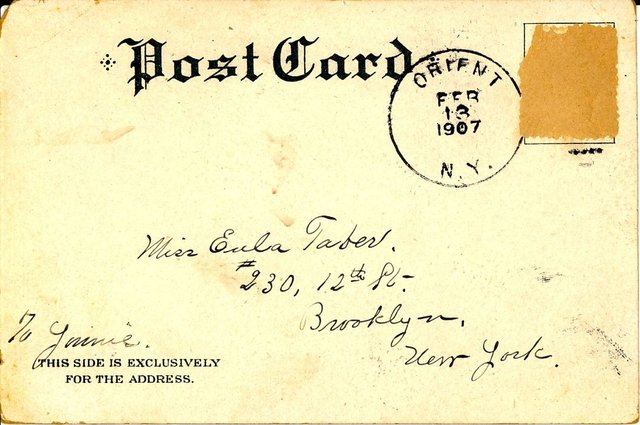 Post Card
ORIENT
FEB
13
1907
N.Y.
Miss Eula Taber.
#230, 12th St.
Brooklyn,
New York.
To
THIS SIDE IS EXCLUSIVELY
FOR THE ADDRESS.